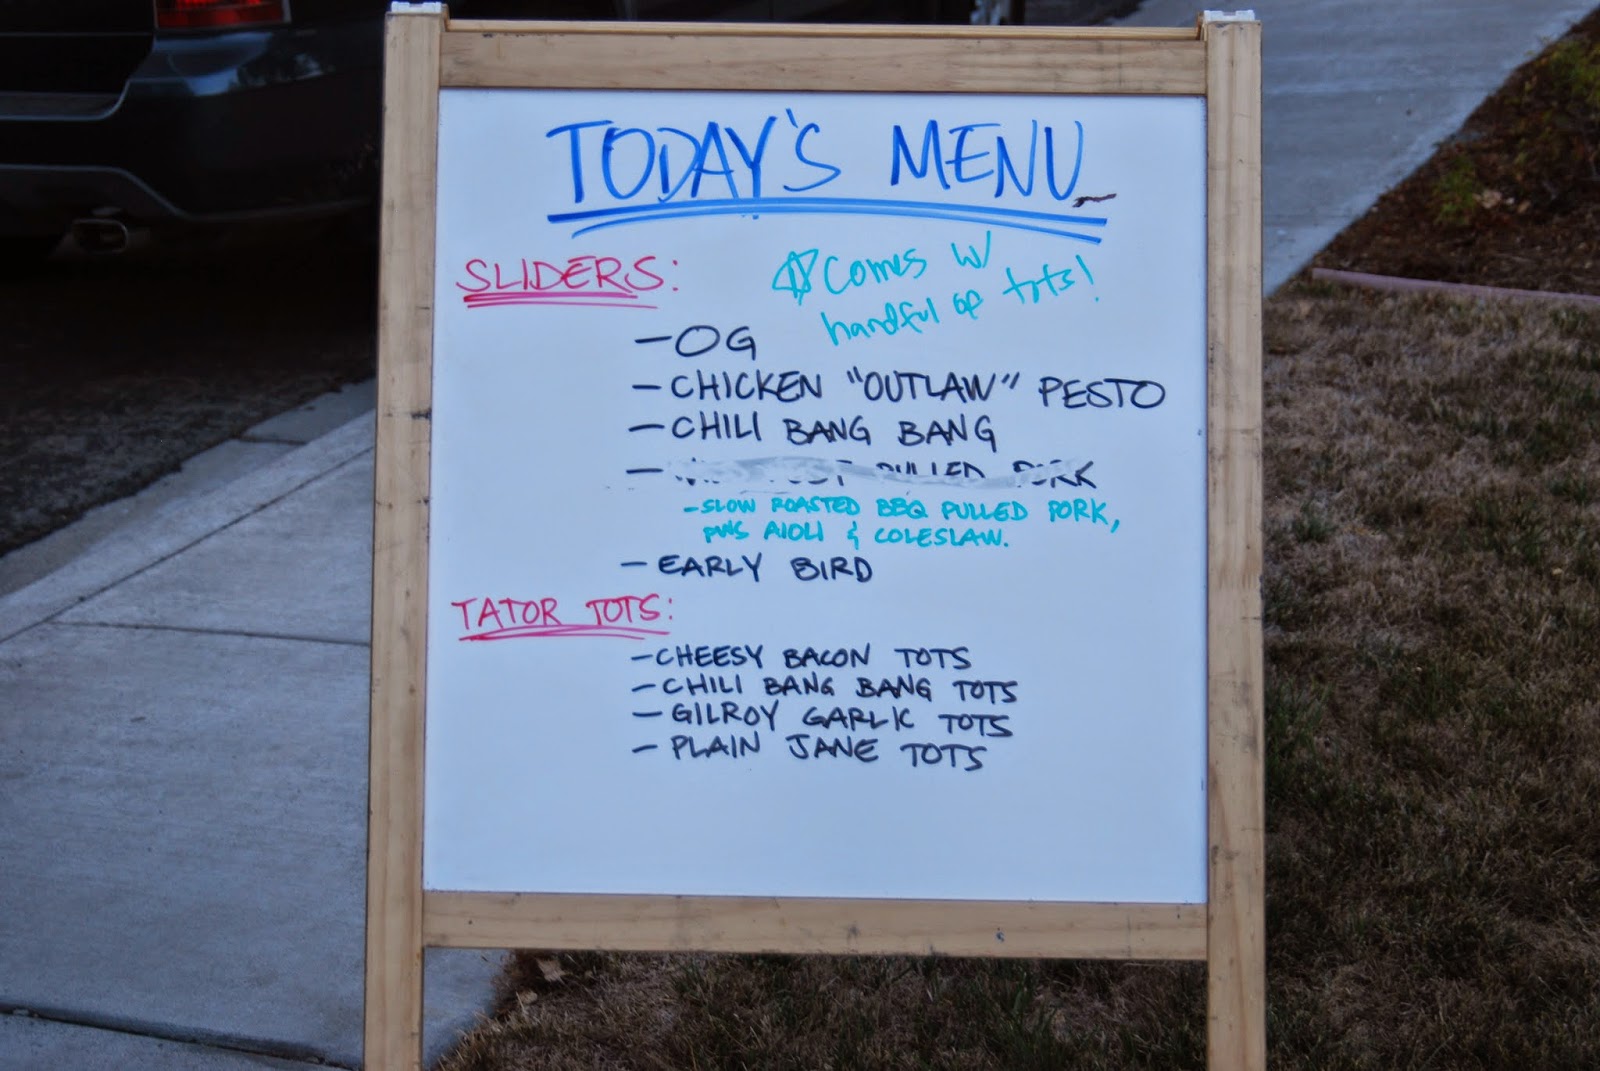 TODAY'S MENU
SLIDERS:
Comes w/
handful of tots!
- OG
- CHICKEN "OUTLAW" PESTO
- CHILI BANG BANG
- PULLED PORK
- SLOW ROASTED BBQ PULLED PORK,
AIOLI & COLESLAW.
- EARLY BIRD
TATOR TOTS:
- CHEESY BACON TOTS
- CHILI BANG BANG TOTS
- GILROY GARLIC TOTS
- PLAIN JANE TOTS